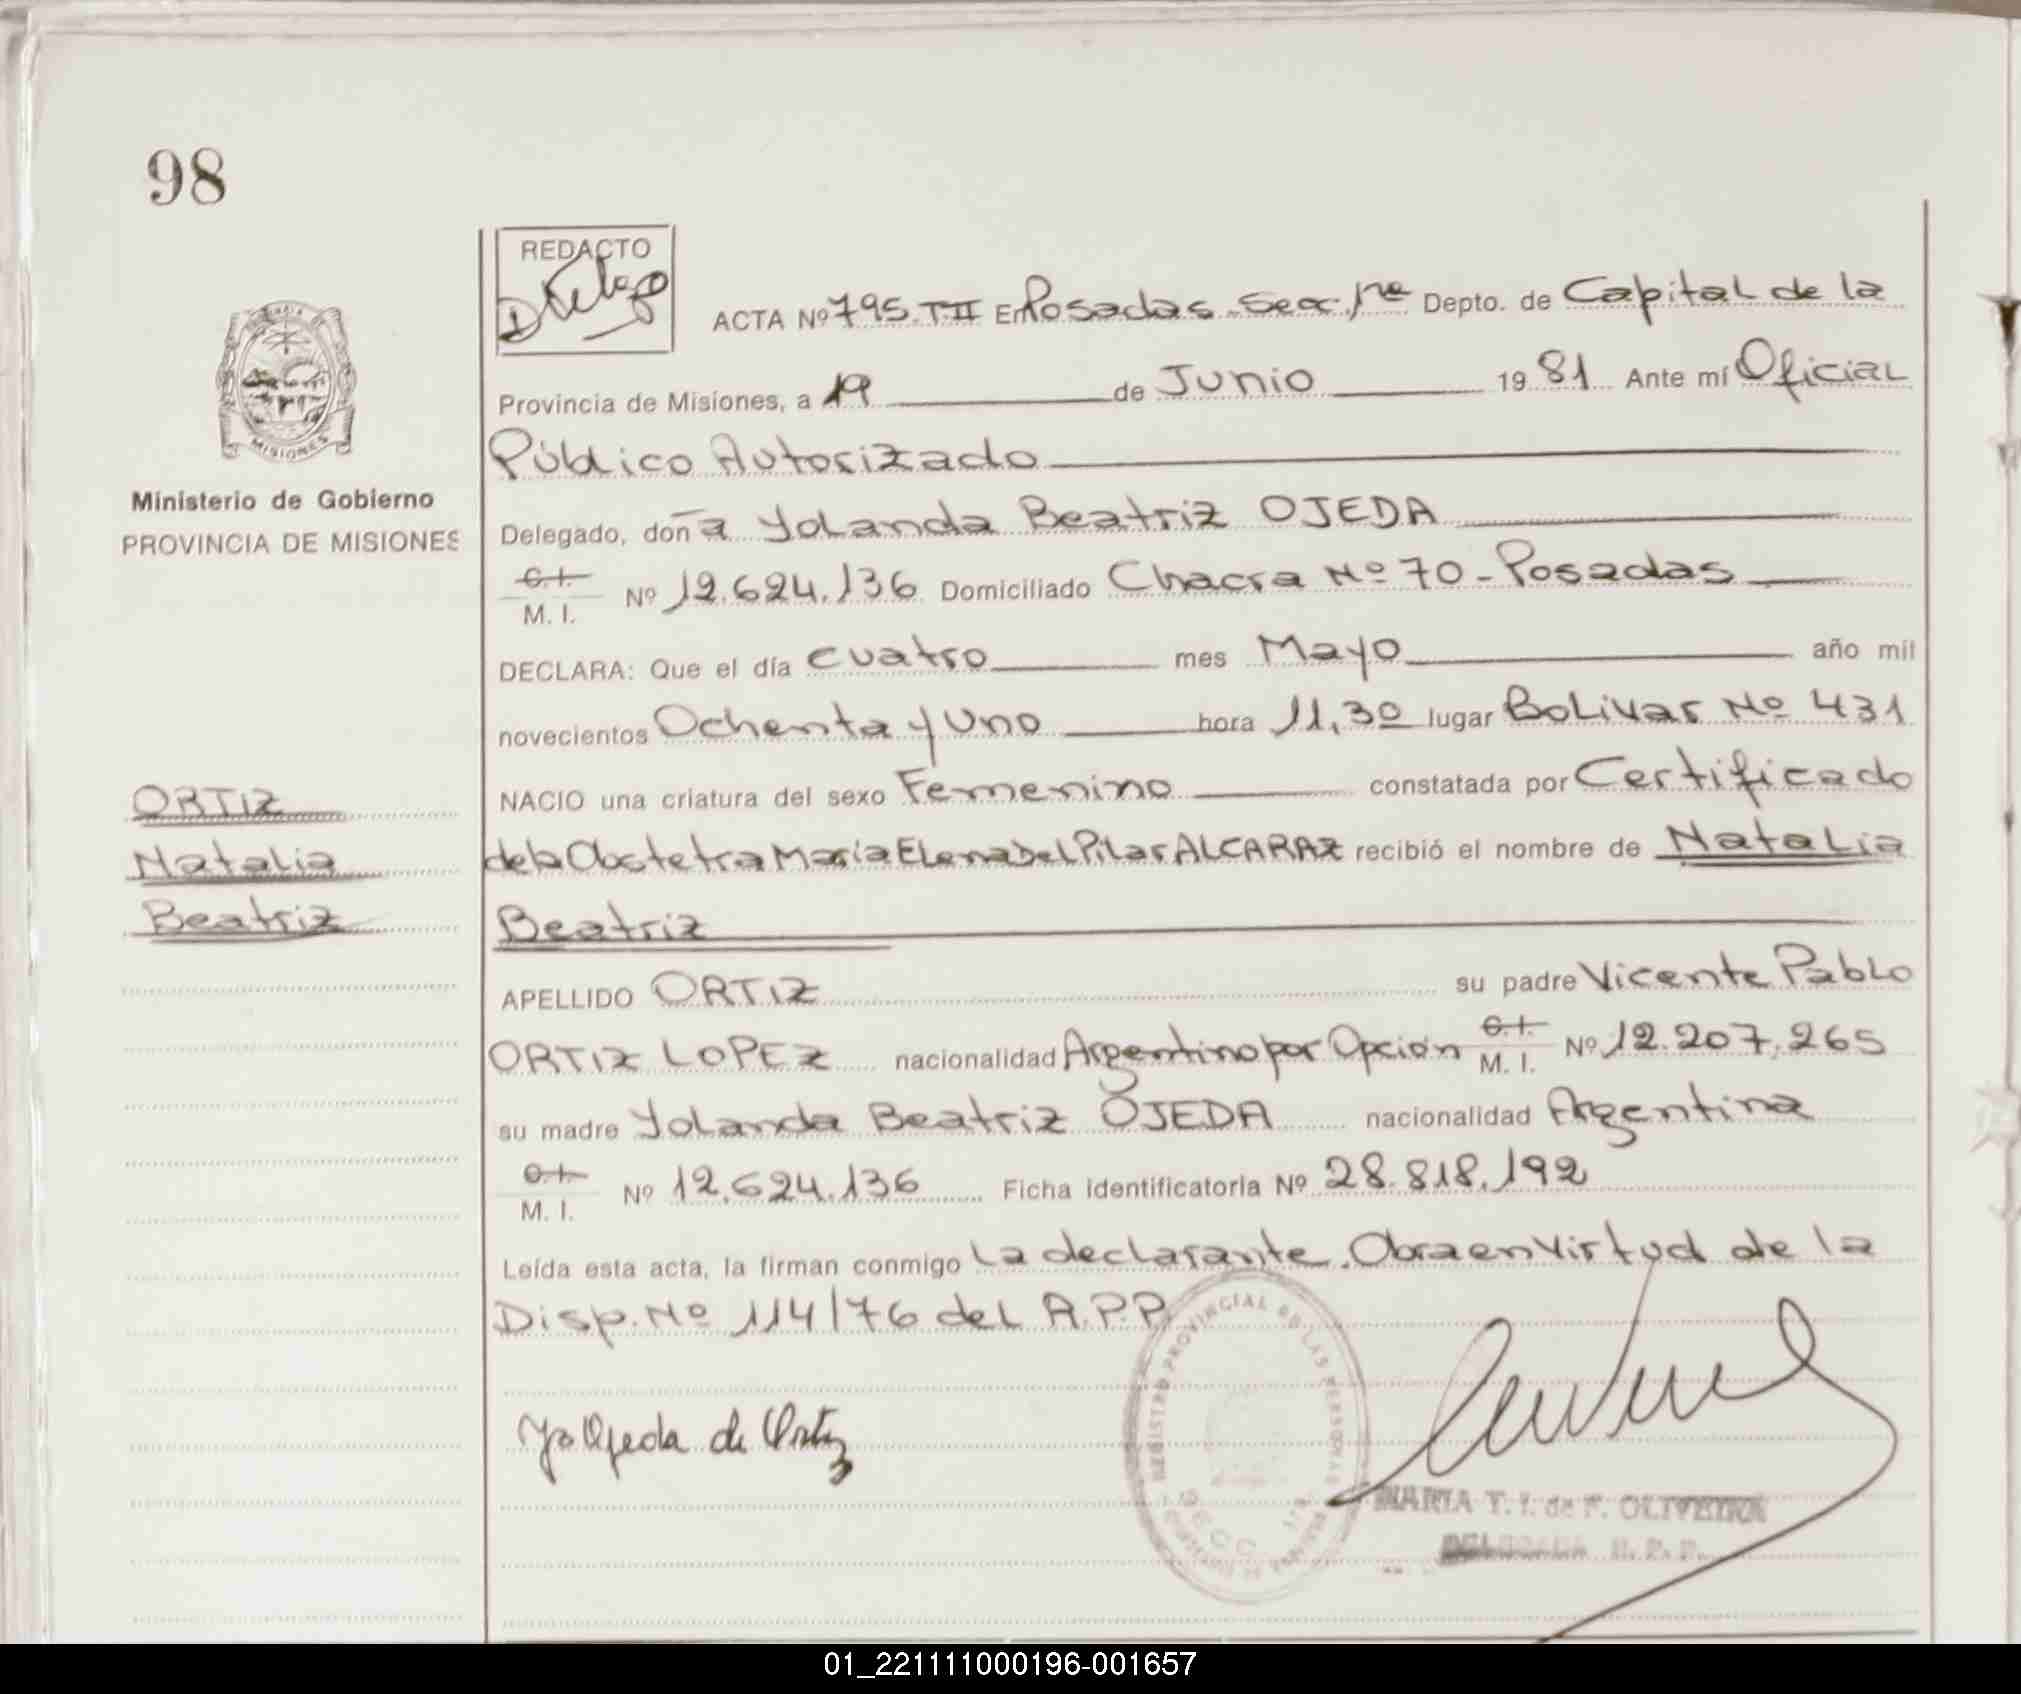 98
REDACTO
ACTA Nº 795. T II En Posadas Sec. 1ra Depto. de Capital de la
Provincia de Misiones, a 19 de Junio 19 81 Ante mí Oficial
Público Autorizado
MISIONES
Ministerio de Gobierno
PROVINCIA DE MISIONES
Delegado, don a Yolanda Beatriz OJEDA
C.I.
M. I. Nº 12.624.136 Domiciliado Chacra Nº 70 - Posadas
DECLARA: Que el día cuatro mes Mayo año mil
novecientos Ochenta y Uno hora 11,30 lugar Bolivar Nº 431
NACIO una criatura del sexo Femenino constatada por Certificado
de la Obstetra María Elena Del Pilar ALCARAZ recibió el nombre de Natalia
Beatriz
ORTIZ
Natalia
Beatriz
APELLIDO ORTIZ su padre Vicente Pablo
ORTIZ LOPEZ nacionalidad Argentino por Opción C.I. M. I. Nº 12.207.265
su madre Yolanda Beatriz OJEDA nacionalidad Argentina
C.I.
M. I. Nº 12.624.136 Ficha identificatoria Nº 28.818.192
Leída esta acta, la firman conmigo la declarante. Obra en Virtud de la
Disp. Nº 114/76 del A.P.P.
REGISTRO PROVINCIAL DE LAS PERSONAS
Yo Ojeda de Ortiz
MARIA T. I. de F. OLIVEIRA
DELEGADA R. P. P.
01_221111000196-001657